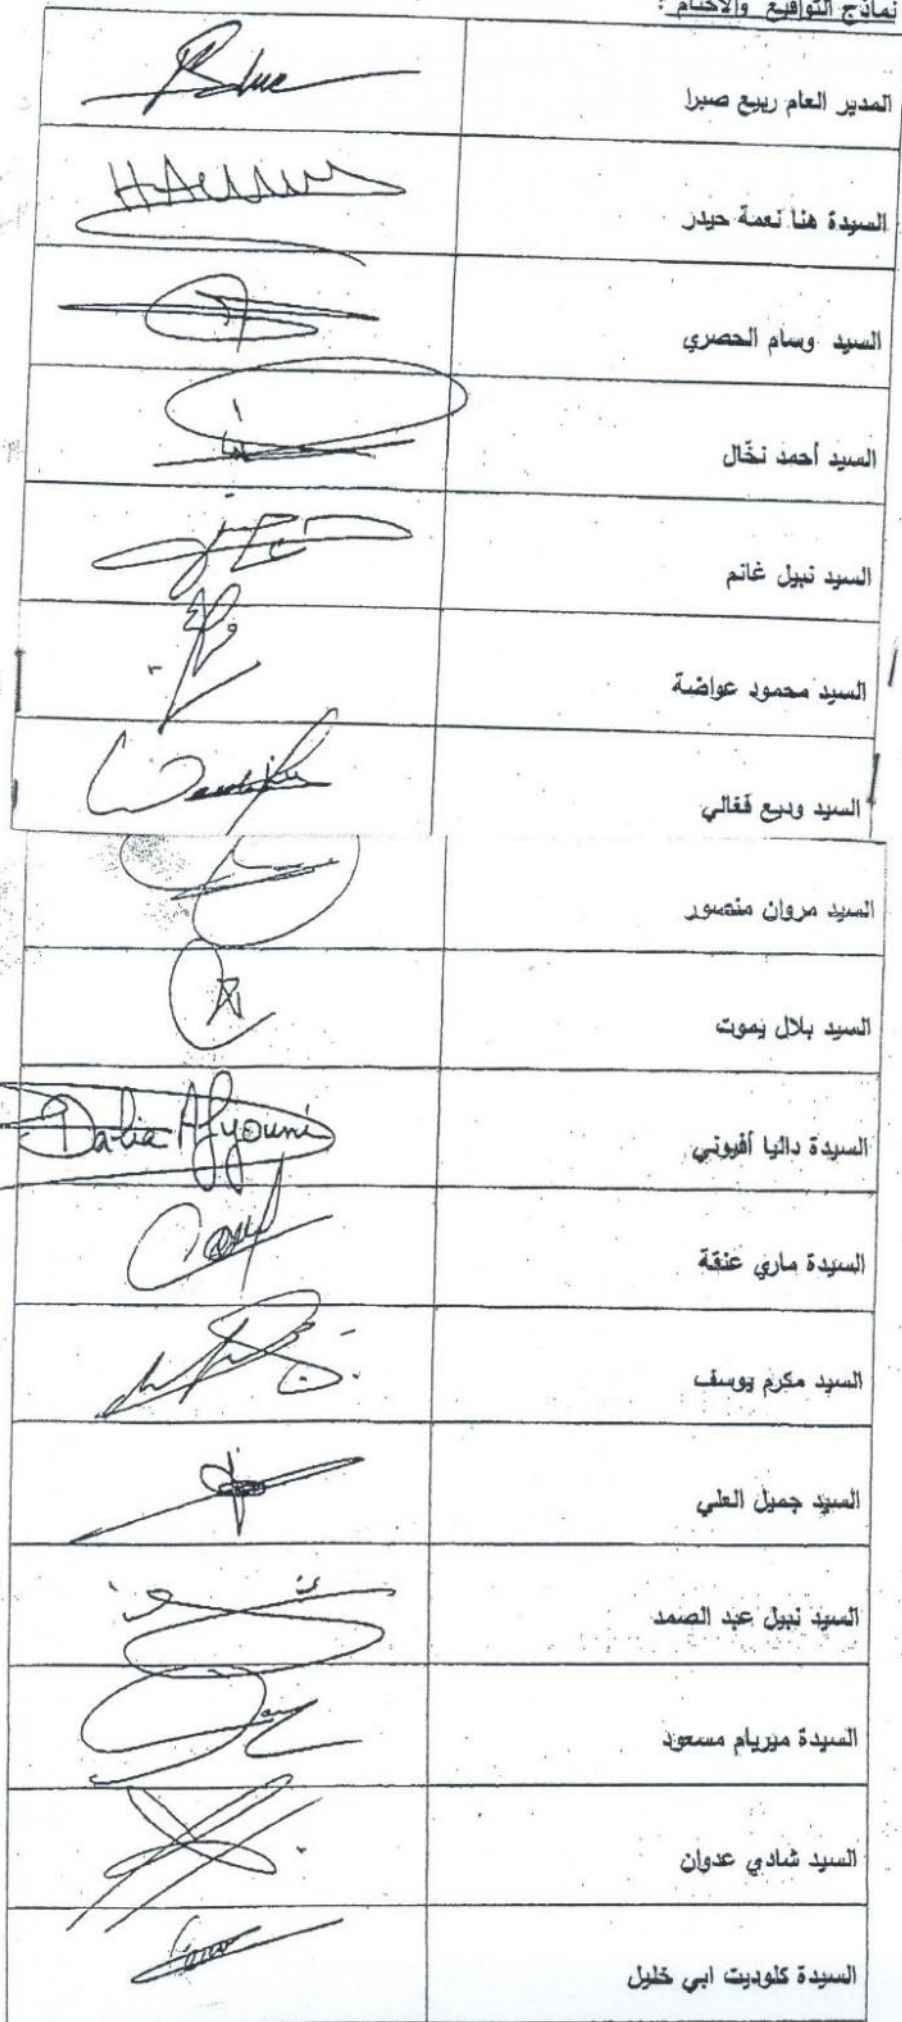 نماذج التواقيع والأختام :
المدير العام ربيع صبرا
السيدة هنا نعمة حيدر
السيد وسام الحصري
السيد أحمد نخّال
السيد نبيل غانم
السيد محمود عواضة
السيد وديع فغالي
السيد مروان منصور
السيد بلال يموت
السيدة داليا أفيوني
Dalia Afyouni
السيدة ماري عنقة
السيد مكرم يوسف
السيد جميل العلي
السيد نبيل عبد الصمد
السيدة ميريام مسعود
السيد شادي عدوان
السيدة كلوديت ابي خليل